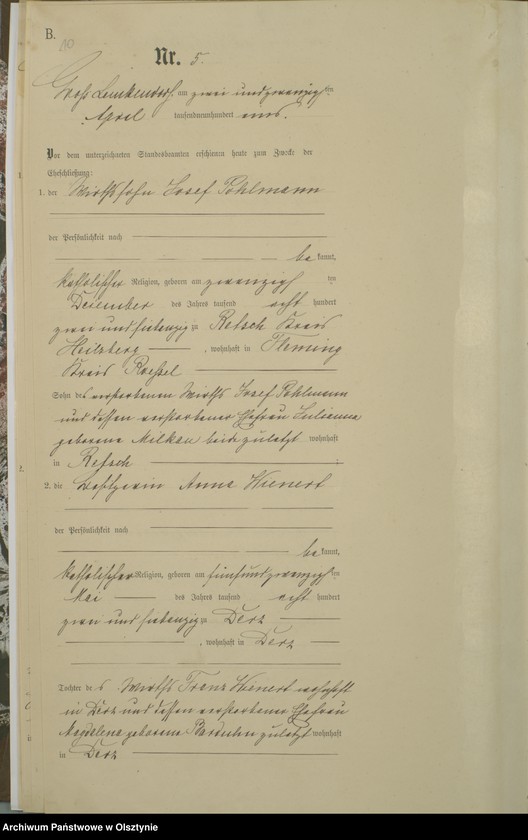 B.
10
Nr. 5.
Gross Lemkendorf am zwei und zwanzigsten
April tausendneunhundert eins.
Vor dem unterzeichneten Standesbeamten erschienen heute zum Zwecke der
Eheschließung:
1. der Wirthssohn Josef Pohlmann
der Persönlichkeit nach
be kannt,
katholischer Religion, geboren am zwanzigsten
Dezember des Jahres tausend acht hundert
zwei und siebenzig zu Retsch Kreis
Heilsberg , wohnhaft in Fleming
Kreis Roessel
Sohn des verstorbenen Wirths Josef Pohlmann
und dessen verstorbener Ehefrau Julianna
geborene beide zuletzt wohnhaft
in Retsch
2. die Besitzerin Anna Wienert
der Persönlichkeit nach
be kannt,
katholischer Religion, geboren am fünfundzwanzigsten
Mai des Jahres tausend acht hundert
zwei und siebenzig zu Derz
, wohnhaft in Derz
Tochter des Wirths Franz Wienert wohnhaft
in Derz und dessen verstorbene Ehefrau
Magdalena geborene zuletzt wohnhaft
in Derz
Archiwum Państwowe w Olsztynie